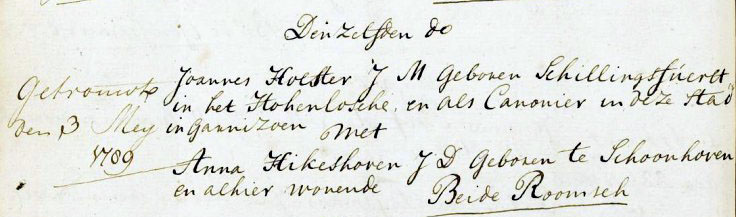 Den zelfden do
Joannes Holster J M Geboren Schillingsfuerst
in het Hohenlosche, en als Canonier in deze Stad
in Gannizoen met
Getrouwt
den 3 Mey
1789
Anna Hikeshoven J D Geboren te Schoonhoven
en alhier wonende Beide Roomsch